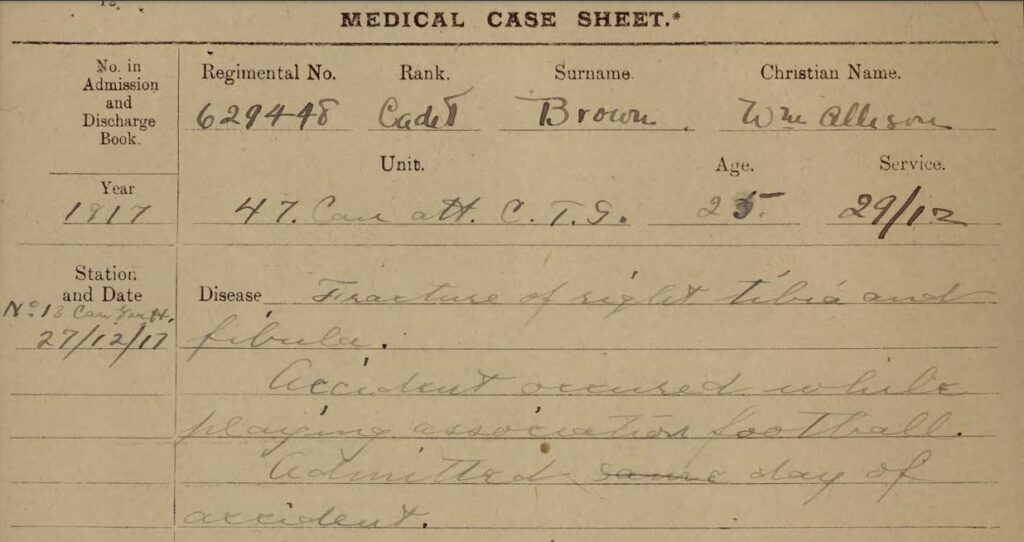 MEDICAL CASE SHEET.*
No. in Admission and Discharge Book.
Regimental No. Rank. Surname. Christian Name.
629448 Cadet Brown. Wm Allison
Unit. Age. Service.
Year
1917 47. Can att. C. T. S. 25. 29/12
Station and Date
No. 13 Can Gen H.
27/12/17
Disease Fracture of right tibia and
fibula.
Accident occured while
playing association football.
Admitted same day of
accident.